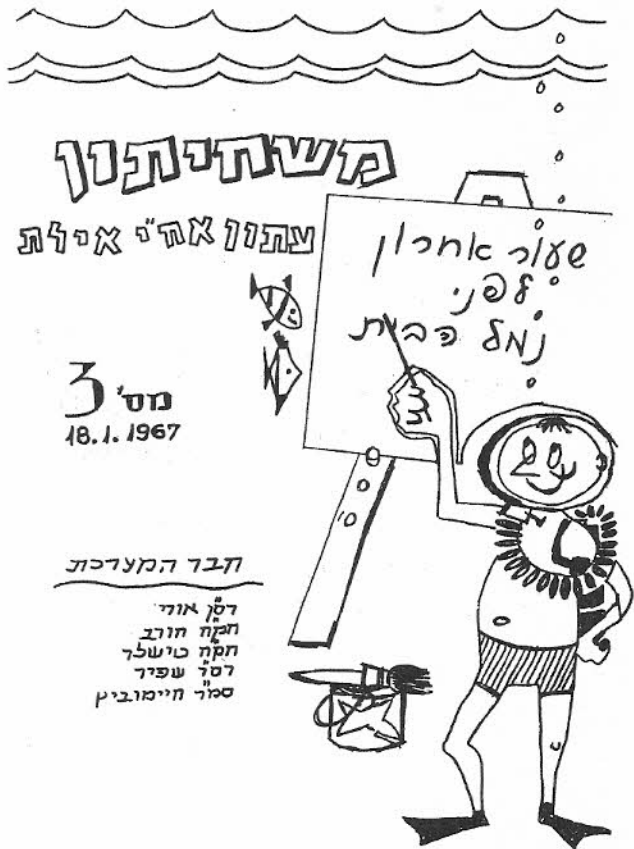 משחיתון
עתון אח"י אילת
שעור אחרון
לפני
נמל הבית
מס' 3
18.1.1967
חבר המערכת
רס"ן אורי
חורב
טישלר
רס"ר שפיר
סמ"ר חיימוביץ